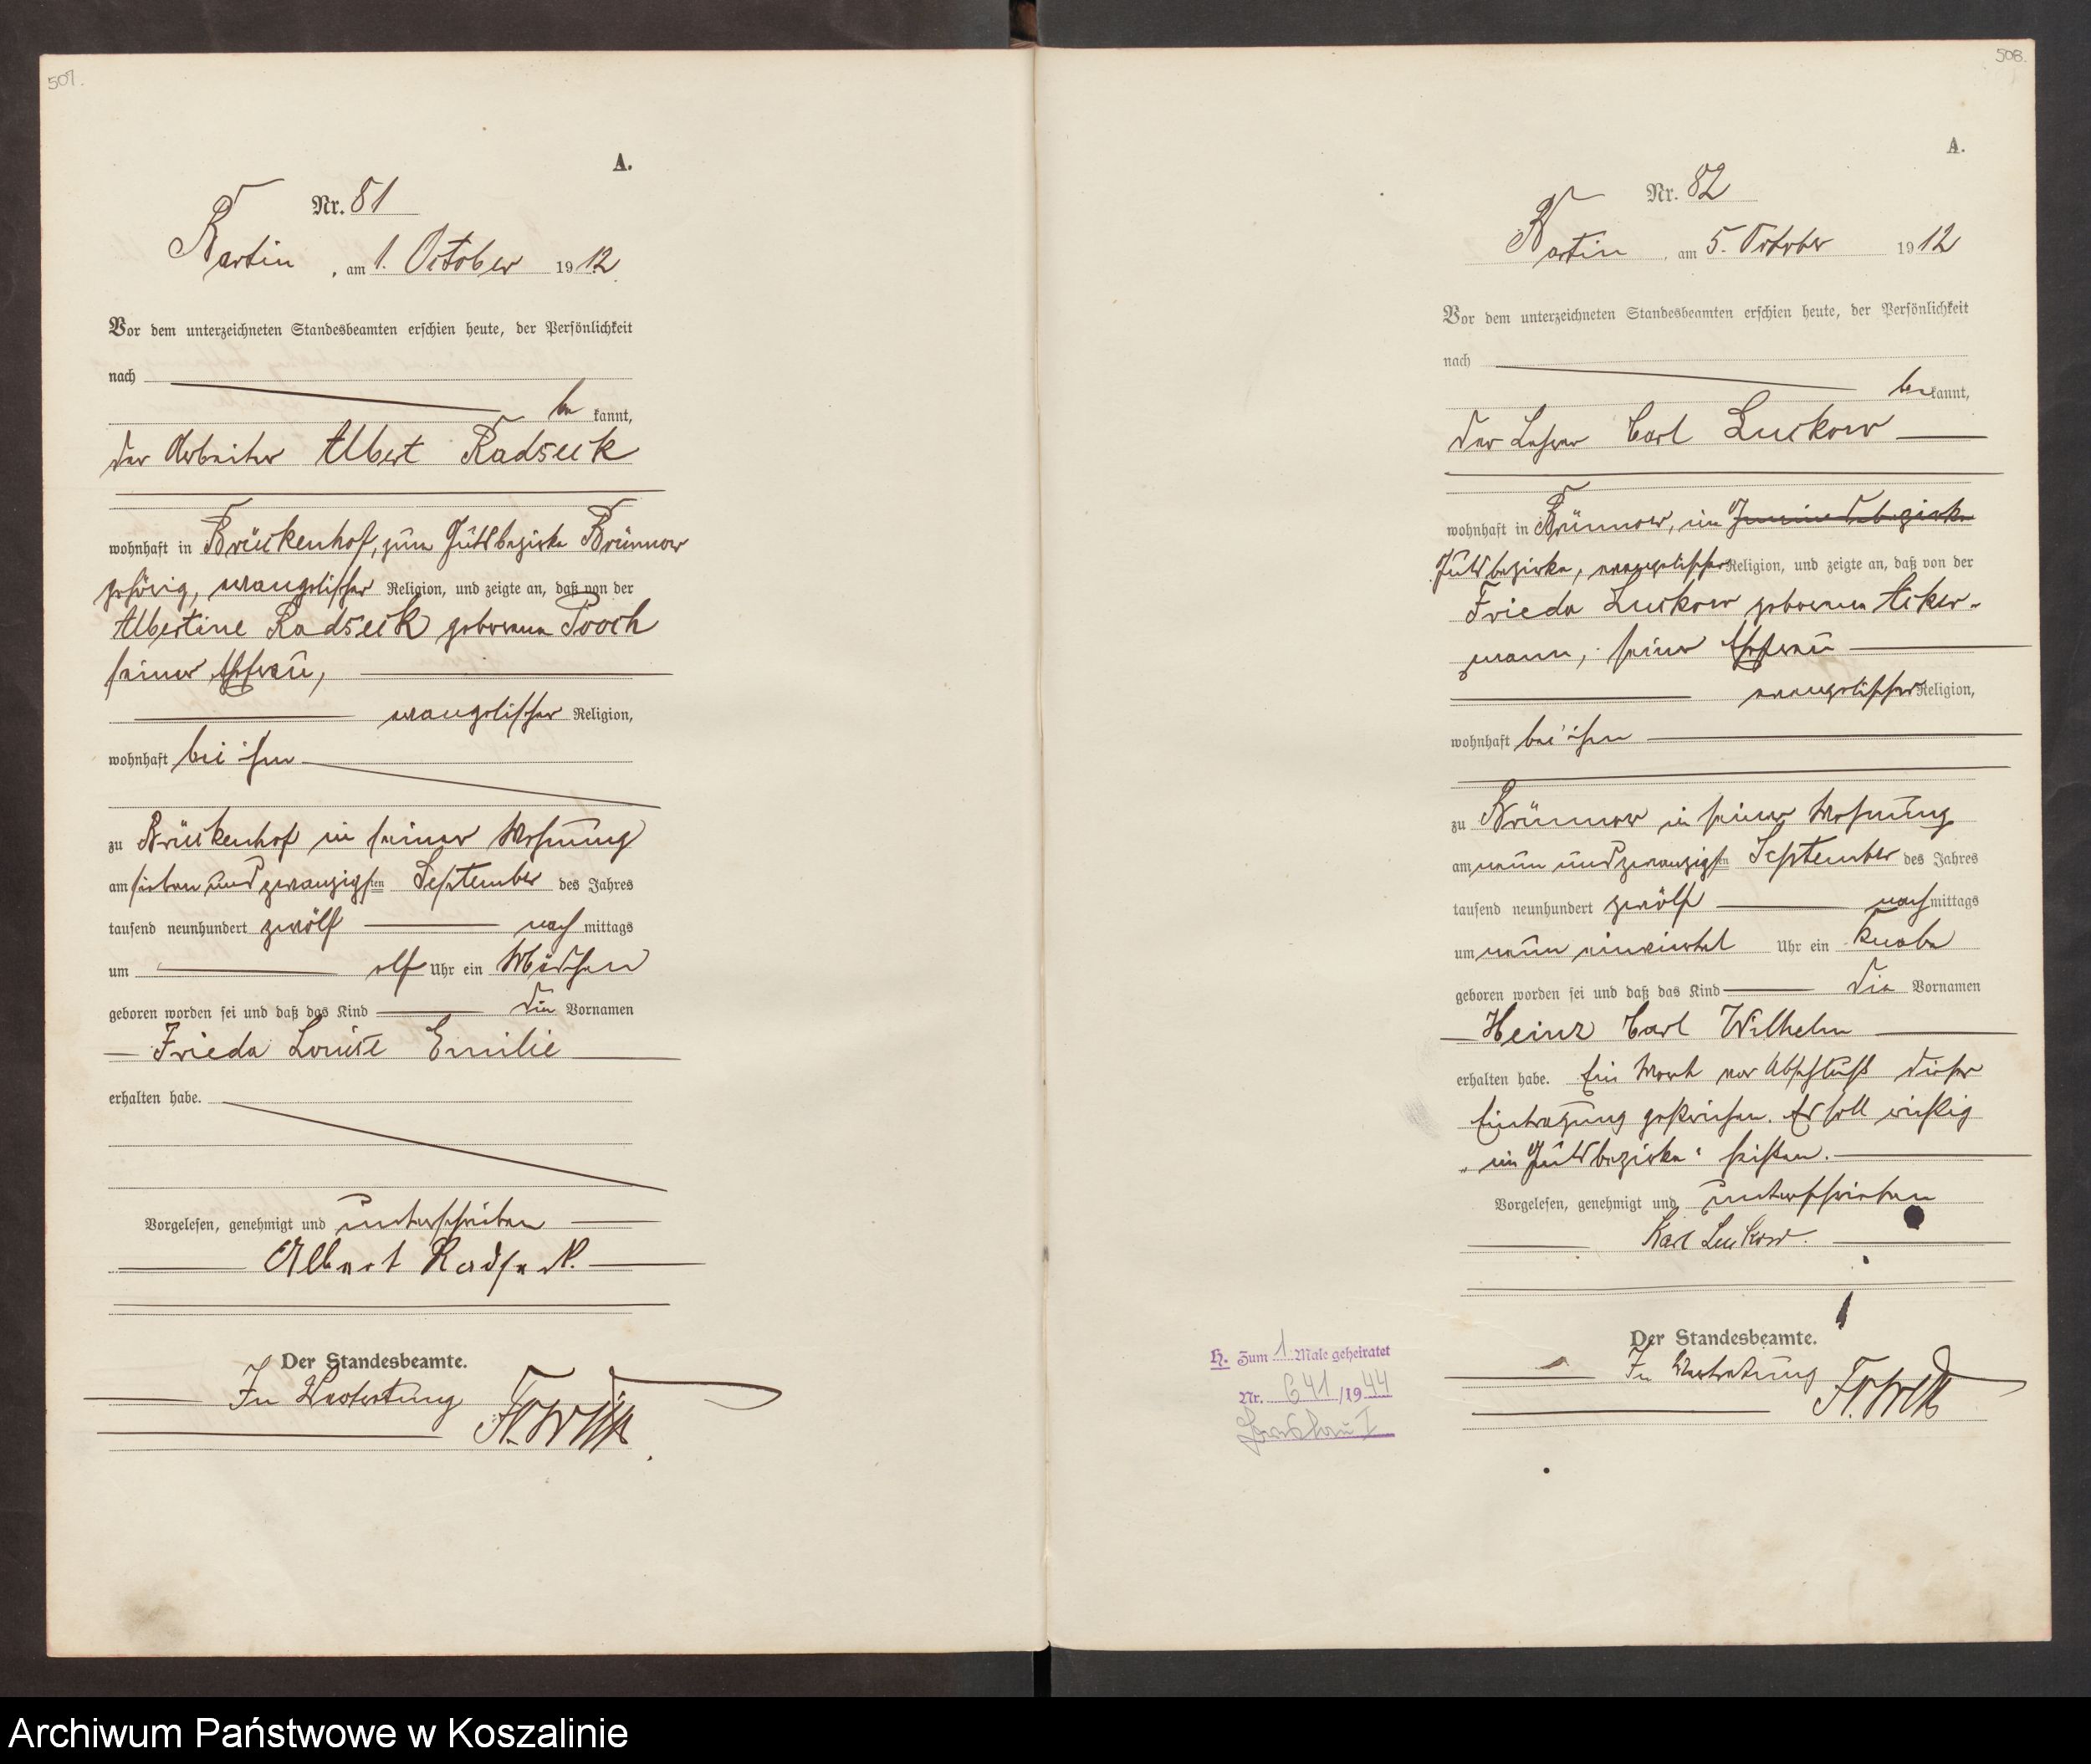 507.
A.
Nr. 81
Bartin, am 1. October 1912.
Vor dem unterzeichneten Standesbeamten erschien heute, der Persönlichkeit
nach
be kannt,
der Arbeiter Albert Radseck
wohnhaft in Brückenhof, zum Gutsbezirke Brünnow
gehörig, evangelischer Religion, und zeigte an, daß von der
Albertine Radseck geborenen Pooch
seiner Ehefrau,
evangelischer Religion,
wohnhaft bei ihm
zu Brückenhof in seiner Wohnung
am sieben und zwanzigsten September des Jahres
tausend neunhundert zwölf nach mittags
um elf Uhr ein Mädchen
geboren worden sei und daß das Kind die Vornamen
Frieda Louise Emilie
erhalten habe.
Vorgelesen, genehmigt und unterschrieben
Albert Radseck.
Der Standesbeamte.
In Vertretung
508.
A.
Nr. 82
Bartin, am 5. October 1912
Vor dem unterzeichneten Standesbeamten erschien heute, der Persönlichkeit
nach
be kannt,
der Lehrer Carl Luckow
wohnhaft in Brünnow, im Gemeindebezirke
Gutsbezirke, evangelischer Religion, und zeigte an, daß von der
Frieda Luckow geborenen Acker-
mann, seiner Ehefrau
evangelischer Religion,
wohnhaft bei ihm
zu Brünnow in seiner Wohnung
am neun und zwanzigsten September des Jahres
tausend neunhundert zwölf nach mittags
um neun einviertel Uhr ein Knabe
geboren worden sei und daß das Kind die Vornamen
Heinz Carl Wilhelm
erhalten habe. Ein Wort vor Abschluß dieser
Eintragung gestrichen. Es soll richtig
"im Gutsbezirke" heißen.
Vorgelesen, genehmigt und unterschrieben
Karl Luckow.
Der Standesbeamte.
In Vertretung
H. Zum 1 Male geheiratet
Nr. 641/1944
Archiwum Państwowe w Koszalinie